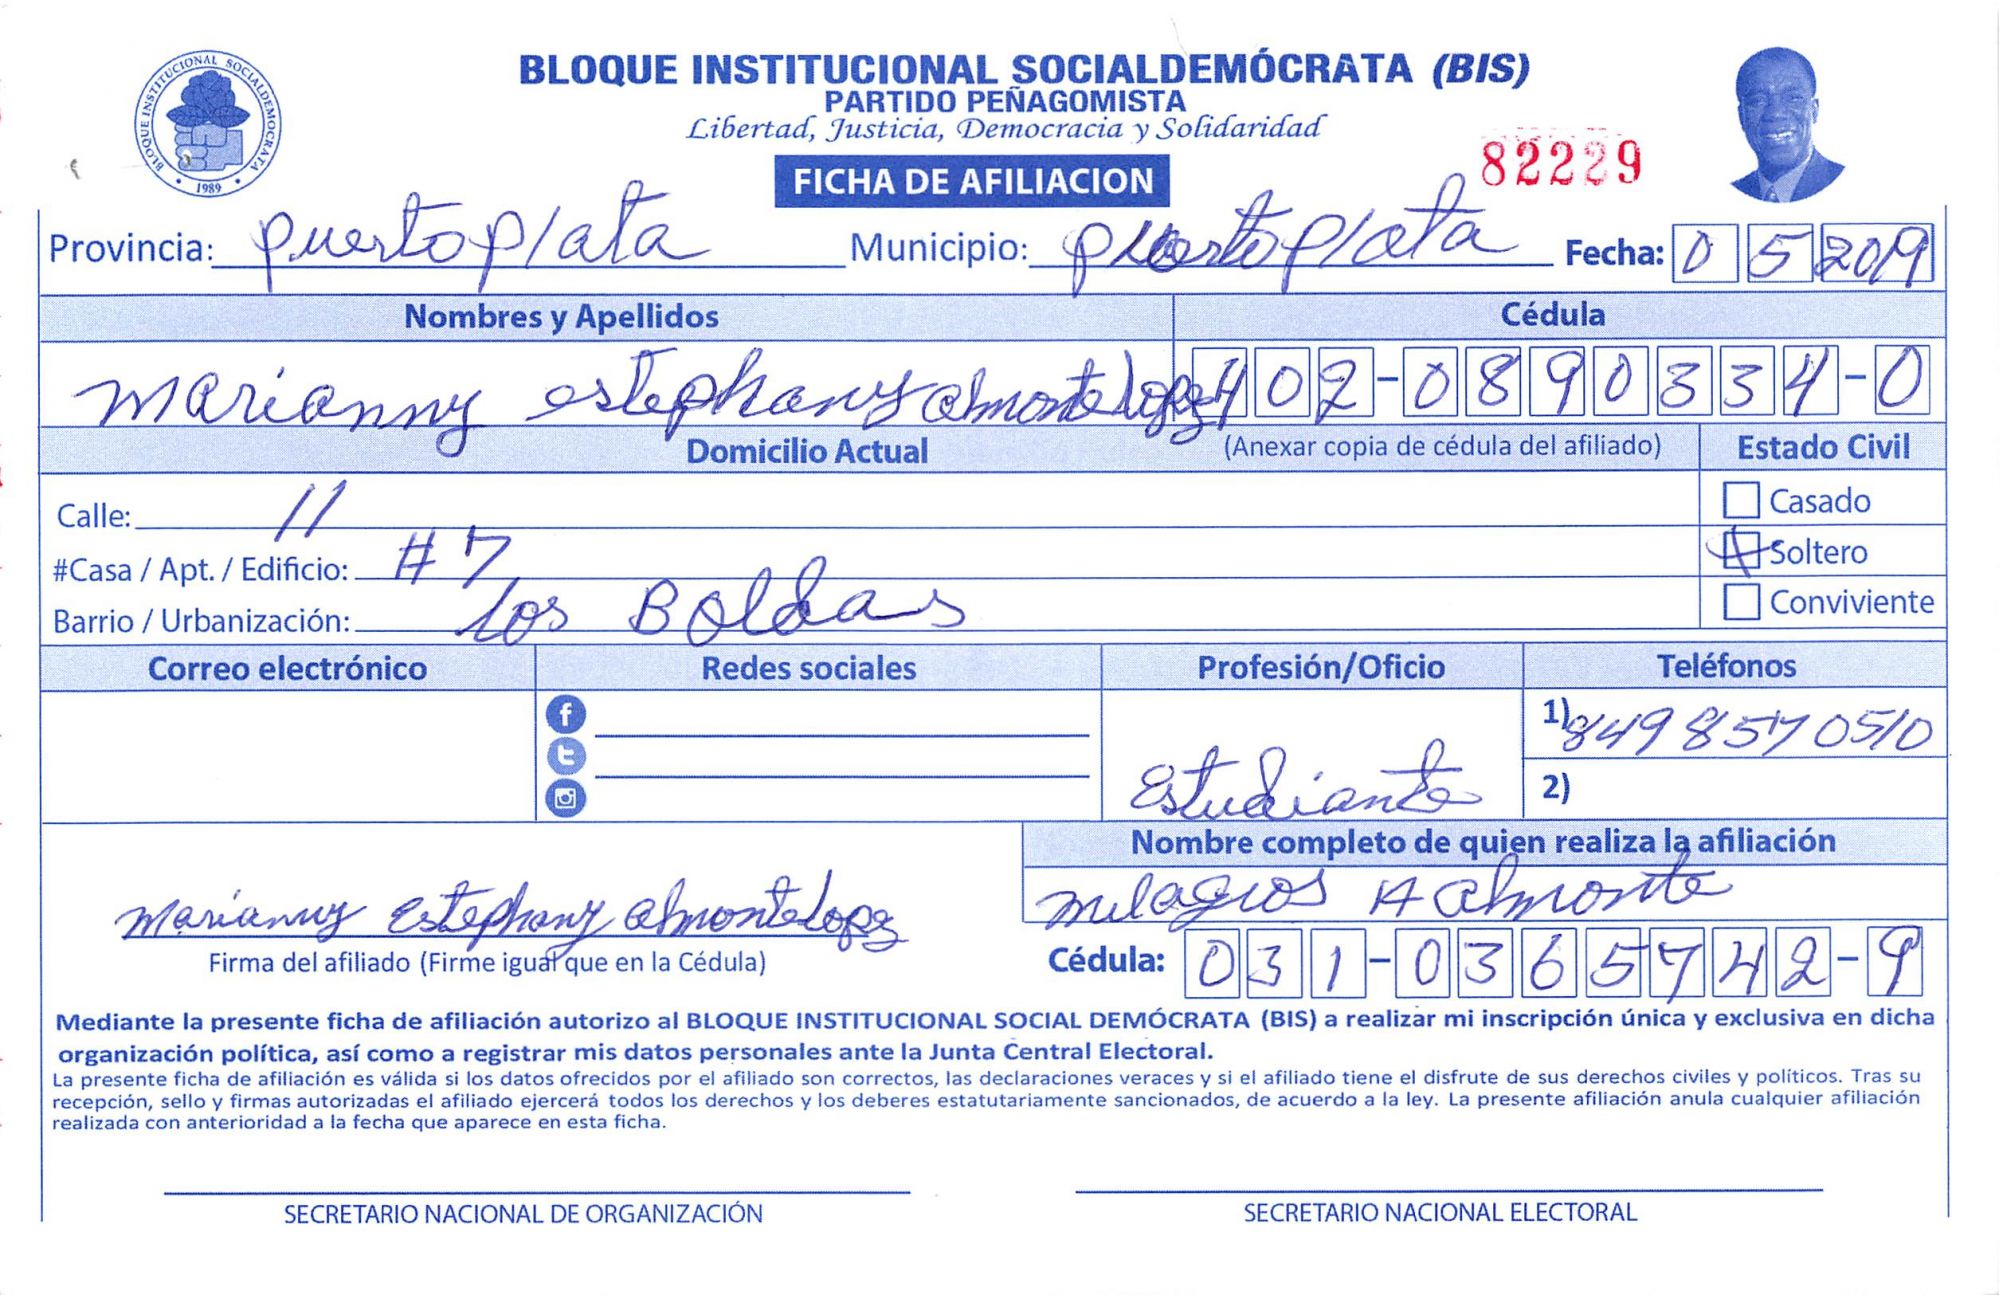 BLOQUE INSTITUCIONAL SOCIALDEMOCRATA
1989
BLOQUE INSTITUCIONAL SOCIALDEMÓCRATA (BIS)
PARTIDO PEÑAGOMISTA
Libertad, Justicia, Democracia y Solidaridad
FICHA DE AFILIACION
82229
Provincia: puerto plata Municipio: puerto plata Fecha: 0 5 2019
Nombres y Apellidos Cédula
Marianny estephany almonte Lopez 402-0890334-0
Domicilio Actual (Anexar copia de cédula del afiliado) Estado Civil
Calle: 11 Casado
#Casa / Apt. / Edificio: #7 Soltero
Barrio / Urbanización: Los Boldas Conviviente
Correo electrónico Redes sociales Profesión/Oficio Teléfonos
1) 849 857 0510
Estudiante 2)
Nombre completo de quien realiza la afiliación
Milagros A Almonte
Marianny Estephany almonte Lopez
Firma del afiliado (Firme igual que en la Cédula) Cédula: 031-0365742-9
Mediante la presente ficha de afiliación autorizo al BLOQUE INSTITUCIONAL SOCIAL DEMÓCRATA (BIS) a realizar mi inscripción única y exclusiva en dicha
organización política, así como a registrar mis datos personales ante la Junta Central Electoral.
La presente ficha de afiliación es válida si los datos ofrecidos por el afiliado son correctos, las declaraciones veraces y si el afiliado tiene el disfrute de sus derechos civiles y políticos. Tras su
recepción, sello y firmas autorizadas el afiliado ejercerá todos los derechos y los deberes estatutariamente sancionados, de acuerdo a la ley. La presente afiliación anula cualquier afiliación
realizada con anterioridad a la fecha que aparece en esta ficha.
SECRETARIO NACIONAL DE ORGANIZACIÓN SECRETARIO NACIONAL ELECTORAL